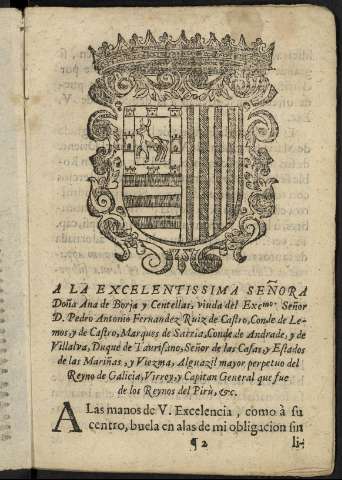 A LA EXCELENTISSIMA SEÑORA
Doña Ana de Borja y Centellas, viuda del Exc.mo Señor
D. Pedro Antonio Fernandez Ruiz de Castro, Conde de Le-
mos, y de Castro, Marques de Sarria, Conde de Andrade, y de
Villalva, Duque de Taurisano, Señor de las Casas, y Estados
de las Mariñas, y Viezma, Alguazil mayor perpetuo del
Reyno de Galicia, Virrey, y Capitan General que fue
de los Reynos del Pirù, &c.
A Las manos de V. Excelencia, como à su
centro, buela en alas de mi obligacion sin
¶ 2 li-